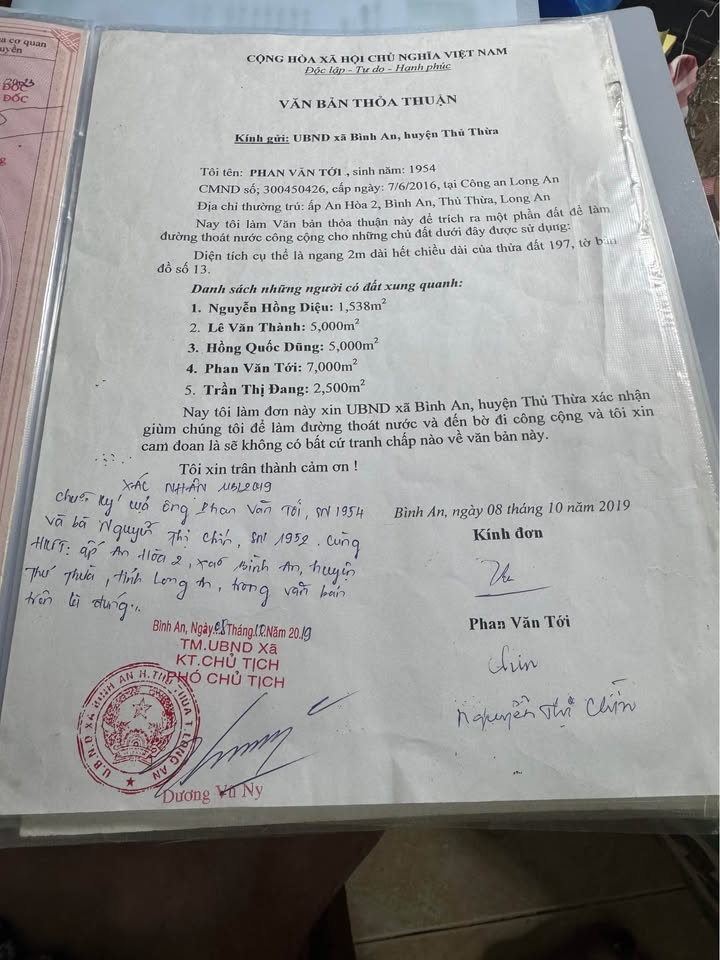 a cơ quan
uyền
ĐỐC
ĐỐC
CỘNG HÒA XÃ HỘI CHỦ NGHĨA VIỆT NAM
Độc lập - Tự do - Hạnh phúc
VĂN BẢN THỎA THUẬN
Kính gửi: UBND xã Bình An, huyện Thủ Thừa
Tôi tên: PHAN VĂN TỚI , sinh năm: 1954
CMND số; 300450426, cấp ngày: 7/6/2016, tại Công an Long An
Địa chỉ thường trú: ấp An Hòa 2, Bình An, Thủ Thừa, Long An
Nay tôi làm Văn bản thỏa thuận này để trích ra một phần đất để làm
đường thoát nước công cộng cho những chủ đất dưới đây được sử dụng:
Diện tích cụ thể là ngang 2m dài hết chiều dài của thửa đất 197, tờ bản
đồ số 13.
Danh sách những người có đất xung quanh:
1. Nguyễn Hồng Diệu: 1,538m²
2. Lê Văn Thành: 5,000m²
3. Hồng Quốc Dũng: 5,000m²
4. Phan Văn Tới: 7,000m²
5. Trần Thị Đang: 2,500m²
Nay tôi làm đơn này xin UBND xã Bình An, huyện Thủ Thừa xác nhận
giùm chúng tôi để làm đường thoát nước và đến bờ đi công cộng và tôi xin
cam đoan là sẽ không có bất cứ tranh chấp nào về văn bản này.
Tôi xin trân thành cảm ơn !
XÁC NHẬN UBND
Chữ ký của ông Phan Văn Tới, SN 1954
và bà Nguyễn Thị Chín, SN 1952. Cùng
HKTT: ấp An Hòa 2, xã Bình An, huyện
Thủ Thừa, tỉnh Long An, trong văn bản
trên là đúng.
Bình An, Ngày 08 Tháng 10 Năm 2019
TM.UBND Xã
KT.CHỦ TỊCH
PHÓ CHỦ TỊCH
U.B.N.D XÃ BÌNH AN H.THỦ THỪA T.LONG AN
Dương Vũ Ny
Bình An, ngày 08 tháng 10 năm 2019
Kính đơn
Phan Văn Tới
Chín
Nguyễn Thị Chín